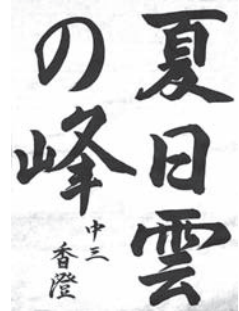 夏日雲
の峰
中三
香澄